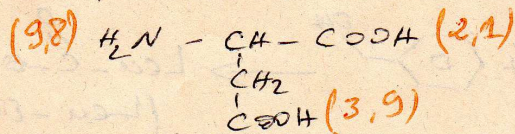 (9,8) H2N - CH - COOH (2,1)
CH2
COOH (3,9)